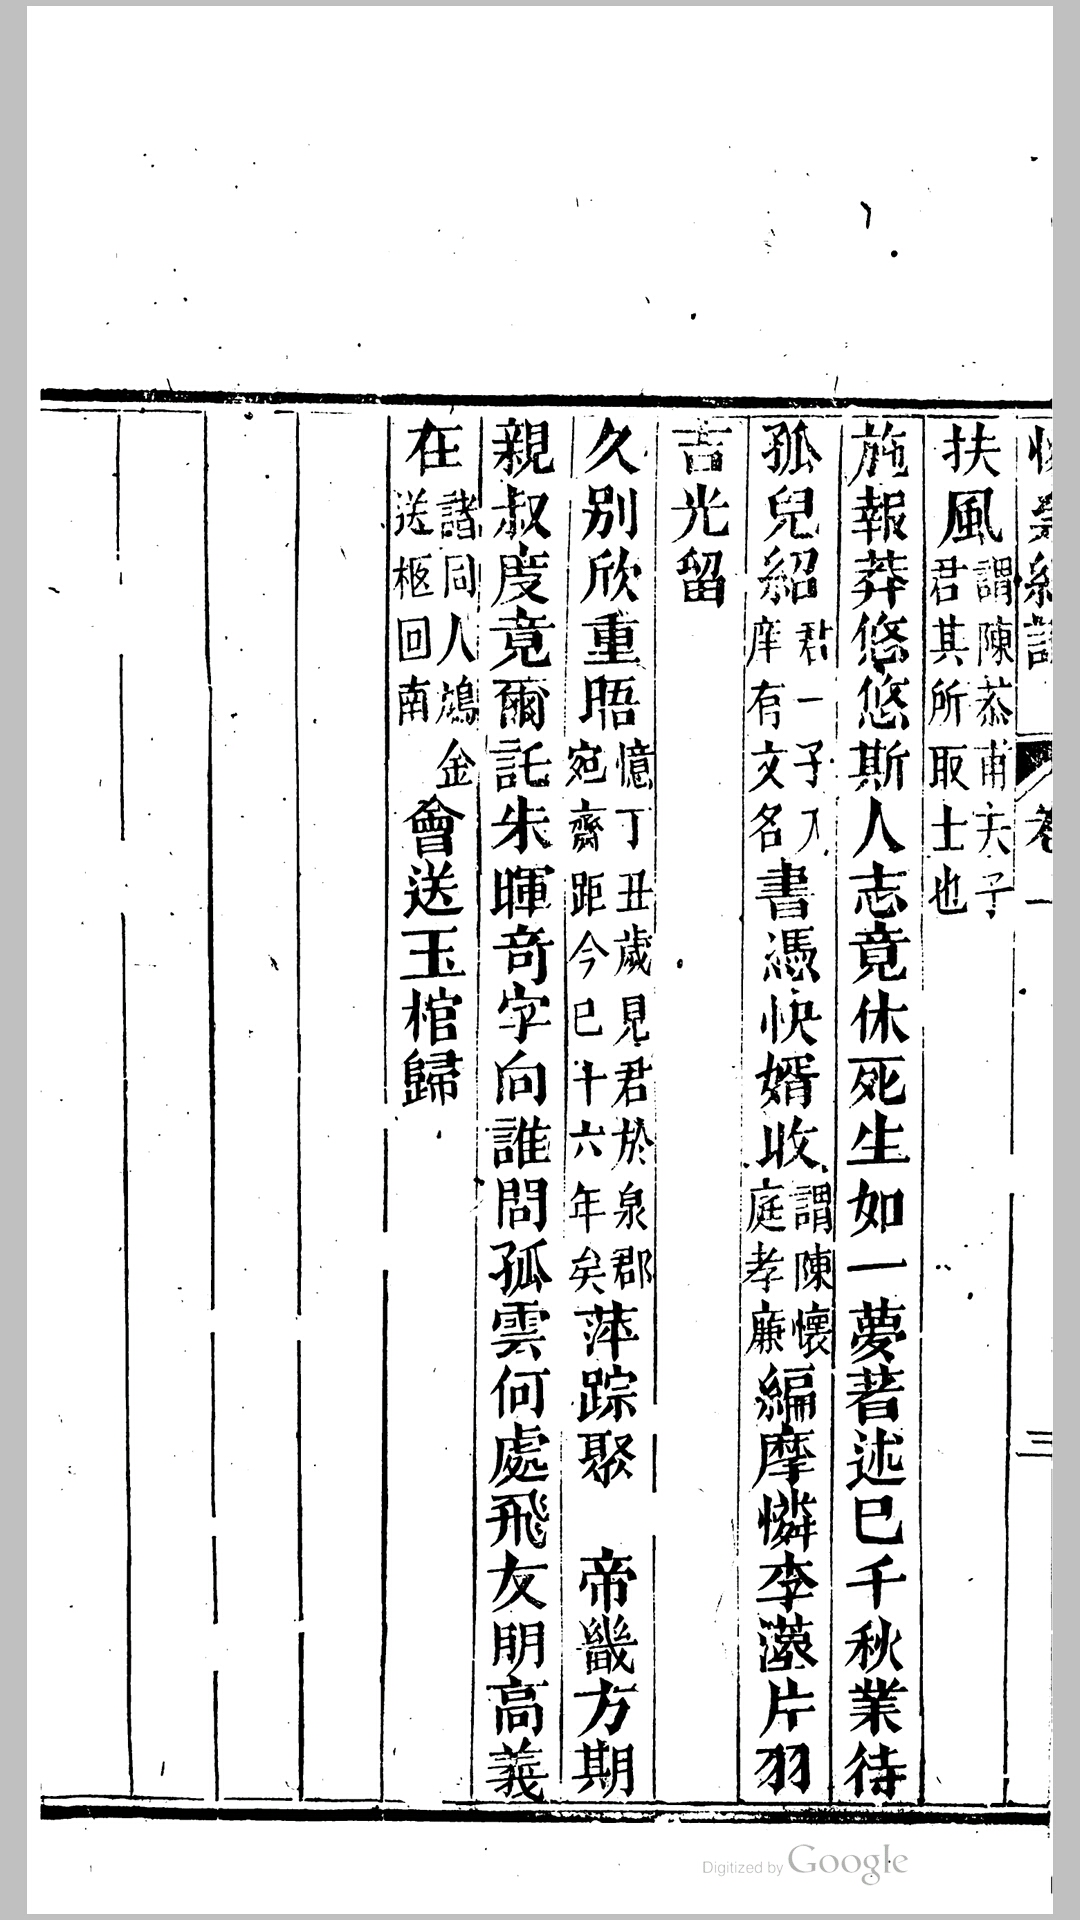 卷一
三
扶風謂陳恭甫夫子君其所取士也
施報莽悠悠斯人志竟休死生如一夢著述巳千秋業待
孤兒紹君一子入庠有文名書憑快婿收謂陳懷庭孝廉編摩憐李漢片羽
吉光留
久別欣重晤憶丁丑歲見君於泉郡宛齋距今已十六年矣萍踪聚　帝畿方期
親叔度竟爾託朱暉奇字向誰問孤雲何處飛友朋高義
在諸同人鳩金送柩回南會送玉棺歸
Digitized by Google